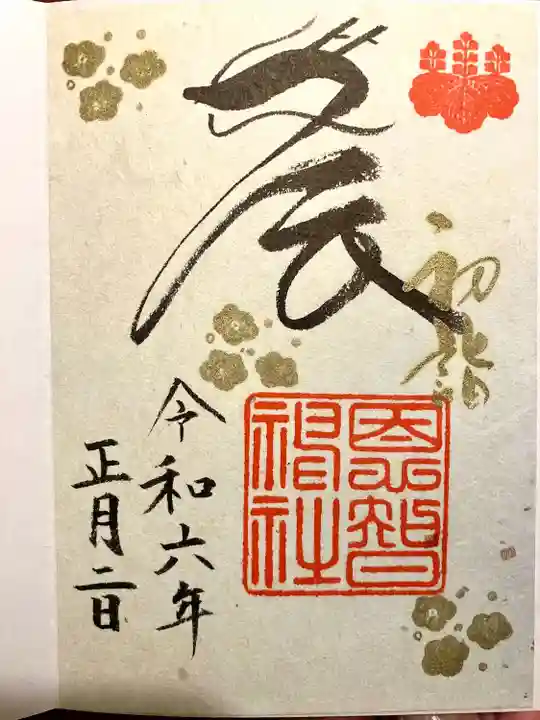 初詣
辰
恩智
神社
令和六年
正月二日